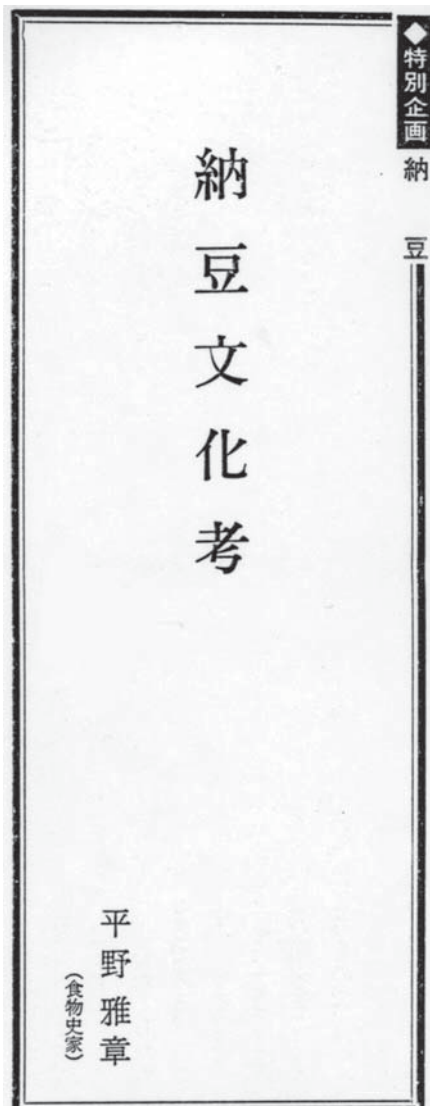 ◆特別企画 納豆
納豆文化考
平野雅章
(食物史家)